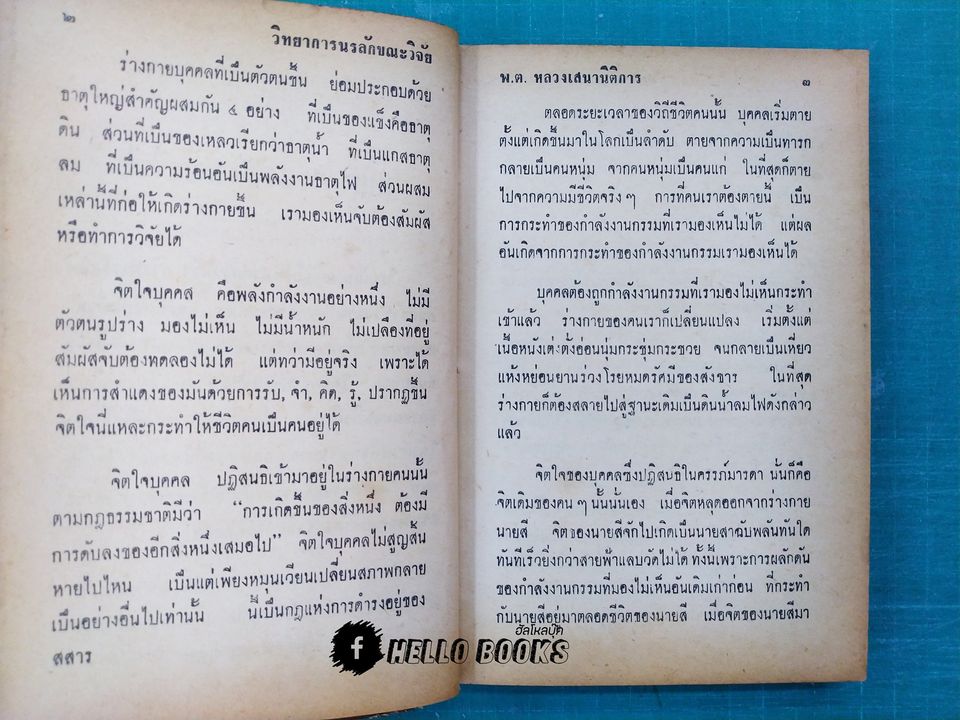 ๒
วิทยาการนรลักขณะวิจัย
ร่างกายบุคคลที่เป็นตัวตนขึ้น ย่อมประกอบด้วย
ธาตุใหญ่สำคัญผสมกัน ๔ อย่าง ที่เป็นของแข็งคือธาตุ
ดิน ส่วนที่เป็นของเหลวเรียกว่าธาตุน้ำ ที่เป็นแกสธาตุ
ลม ที่เป็นความร้อนอันเป็นพลังงานธาตุไฟ ส่วนผสม
เหล่านี้ที่ก่อให้เกิดร่างกายขึ้น เรามองเห็นจับต้องสัมผัส
หรือทำการวิจัยได้
จิตใจบุคคล คือพลังกำลังงานอย่างหนึ่ง ไม่มี
ตัวตนรูปร่าง มองไม่เห็น ไม่มีน้ำหนัก ไม่เปลืองที่อยู่
สัมผัสจับต้องทดลองไม่ได้ แต่ทว่ามีอยู่จริง เพราะได้
เห็นการสำแดงของมันด้วยการรับ, จำ, คิด, รู้, ปรากฏขึ้น
จิตใจนี่แหละกระทำให้ชีวิตคนเป็นคนอยู่ได้
จิตใจบุคคล ปฏิสนธิเข้ามาอยู่ในร่างกายคนนั้น
ตามกฎธรรมชาติมีว่า “การเกิดขึ้นของสิ่งหนึ่ง ต้องมี
การดับลงของอีกสิ่งหนึ่งเสมอไป” จิตใจบุคคลไม่สูญสิ้น
หายไปไหน เป็นแต่เพียงหมุนเวียนเปลี่ยนสภาพกลาย
เป็นอย่างอื่นไปเท่านั้น นี้เป็นกฎแห่งการดำรงอยู่ของ
สสาร
พ.ต. หลวงเสนานิติการ
๓
ตลอดระยะเวลาของวิถีชีวิตคนนั้น บุคคลเริ่มตาย
ตั้งแต่เกิดขึ้นมาในโลกเป็นลำดับ ตายจากความเป็นทารก
กลายเป็นคนหนุ่ม จากคนหนุ่มเป็นคนแก่ ในที่สุดก็ตาย
ไปจากความมีชีวิตจริงๆ การที่คนเราต้องตายนี้ เป็น
การกระทำของกำลังงานกรรมที่เรามองเห็นไม่ได้ แต่ผล
อันเกิดจากการกระทำของกำลังงานกรรมเรามองเห็นได้
บุคคลต้องถูกกำลังงานกรรมที่เรามองไม่เห็นกระทำ
เข้าแล้ว ร่างกายของคนเราก็เปลี่ยนแปลง เริ่มตั้งแต่
เนื้อหนังเต่งตั้งอ่อนนุ่มกระชุ่มกระชวย จนกลายเป็นเหี่ยว
แห้งหย่อนยานร่วงโรยหมดรัศมีของสังขาร ในที่สุด
ร่างกายก็ต้องสลายไปสู่ฐานะเดิมเป็นดินน้ำลมไฟดังกล่าว
แล้ว
จิตใจของบุคคลซึ่งปฏิสนธิในครรภ์มารดา นั้นก็คือ
จิตเดิมของคนๆ นั้นนั่นเอง เมื่อจิตหลุดออกจากร่างกาย
นายสี จิตของนายสีจักไปเกิดเป็นนายสาฉับพลันทันใด
ทันทีเร็วยิ่งกว่าสายฟ้าแลบวัดไม่ได้ ทั้งนี้เพราะการผลักดัน
ของกำลังงานกรรมที่มองไม่เห็นอันเดิมเก่าก่อน ที่กระทำ
กับนายสีอยู่มาตลอดชีวิตของนายสี เมื่อจิตของนายสีมา
ฮัลโหลบุ๊ค
f HELLO BOOKS